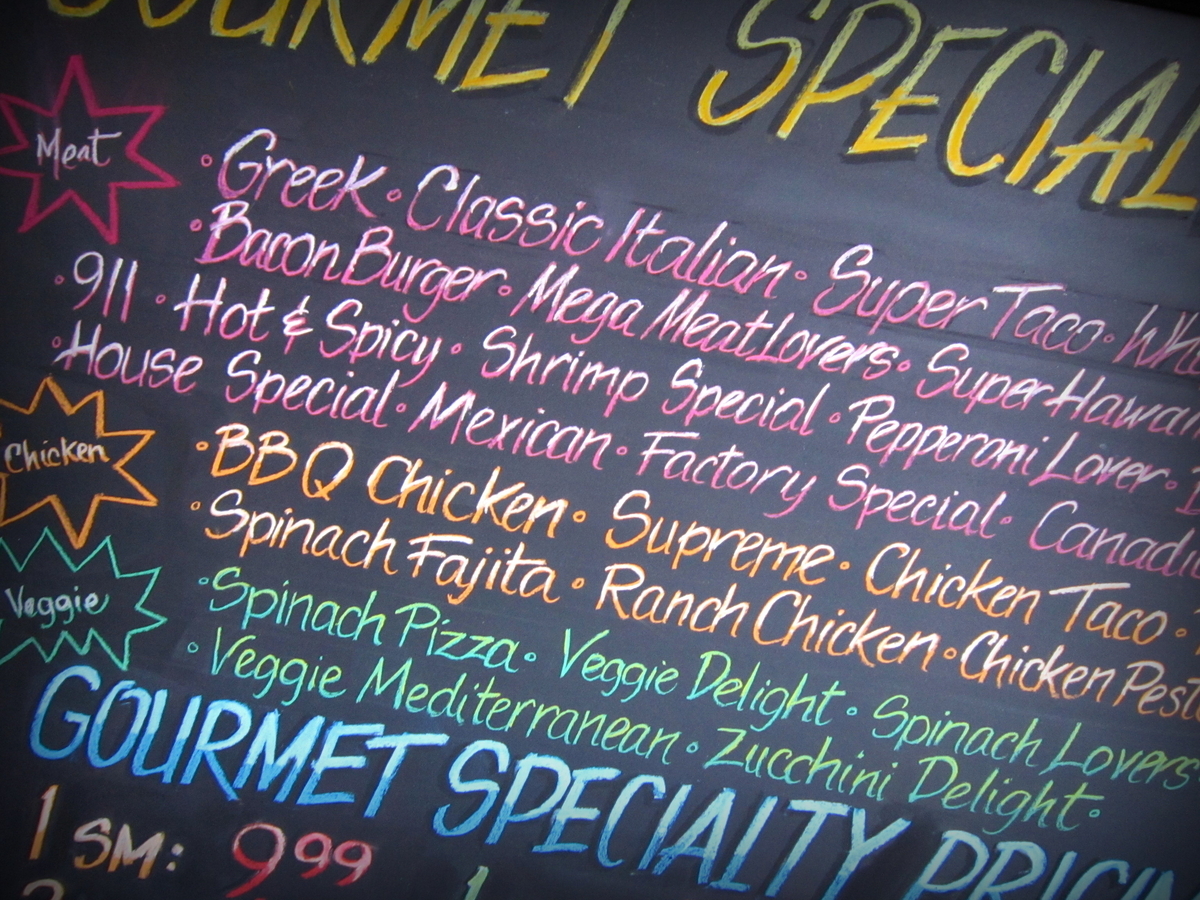 GOURMET SPECIAL
Meat
• Greek • Classic Italian • Super Taco • Wh
• Bacon Burger • Mega Meat Lovers • Super Hawai
• 911 • Hot & Spicy • Shrimp Special • Pepperoni Lover •
• House Special • Mexican • Factory Special • Canadi
Chicken
• BBQ Chicken • Supreme • Chicken Taco •
• Spinach Fajita • Ranch Chicken • Chicken Pest
Veggie
• Spinach Pizza • Veggie Delight • Spinach Lovers
• Veggie Mediterranean • Zucchini Delight •
GOURMET SPECIALTY PRICIN
1 SM: 9 99